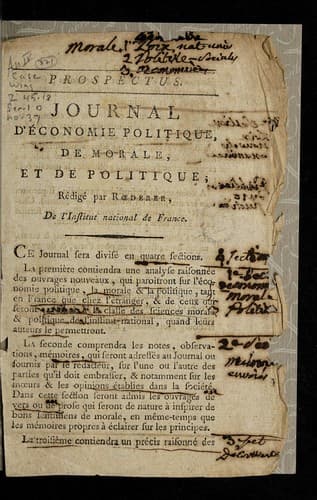 Morale
2 Politike - sociale
3. économie
PROSPECTUS.
JOURNAL
D'ÉCONOMIE POLITIQUE,
DE MORALE,
ET DE POLITIQUE;
Rédigé par RŒDERER,
De l'Institut national de France.
CE Journal sera divisé en quatre sections.
LA première contiendra une analyse raisonnée
des ouvrages nouveaux, qui paroîtront sur l'éco-
nomie politique, la morale & la politique, tant
en France que chez l'étranger, & de ceux que
seront la classe des sciences morales
& politique de l'institut national, quand leurs
auteurs le permettront.
LA seconde comprendra les notes, observa-
tions, mémoires, qui seront adressés au Journal ou
fournis par le rédacteur, sur l'une ou l'autre des
parties qu'il doit embrasser, & notamment sur les
mœurs & les opinions établies dans la société.
Dans cette section seront admis les ouvrages de
vers ou de prose qui seront de nature à inspirer de
bons sentimens de morale, en même-temps que
les mémoires propres à éclairer sur les principes.
La troisième contiendra un précis raisonné des
4 Section
economie
morale
Politike
2e Sec
3 Sect